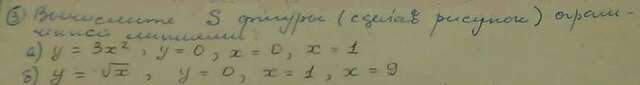 ③ Вычислите S фигуры (сделав рисунок) ограни-
ченной линиями
а) y = 3x², y = 0, x = 0, x = 1
б) y = √x, y = 0, x = 1, x = 9